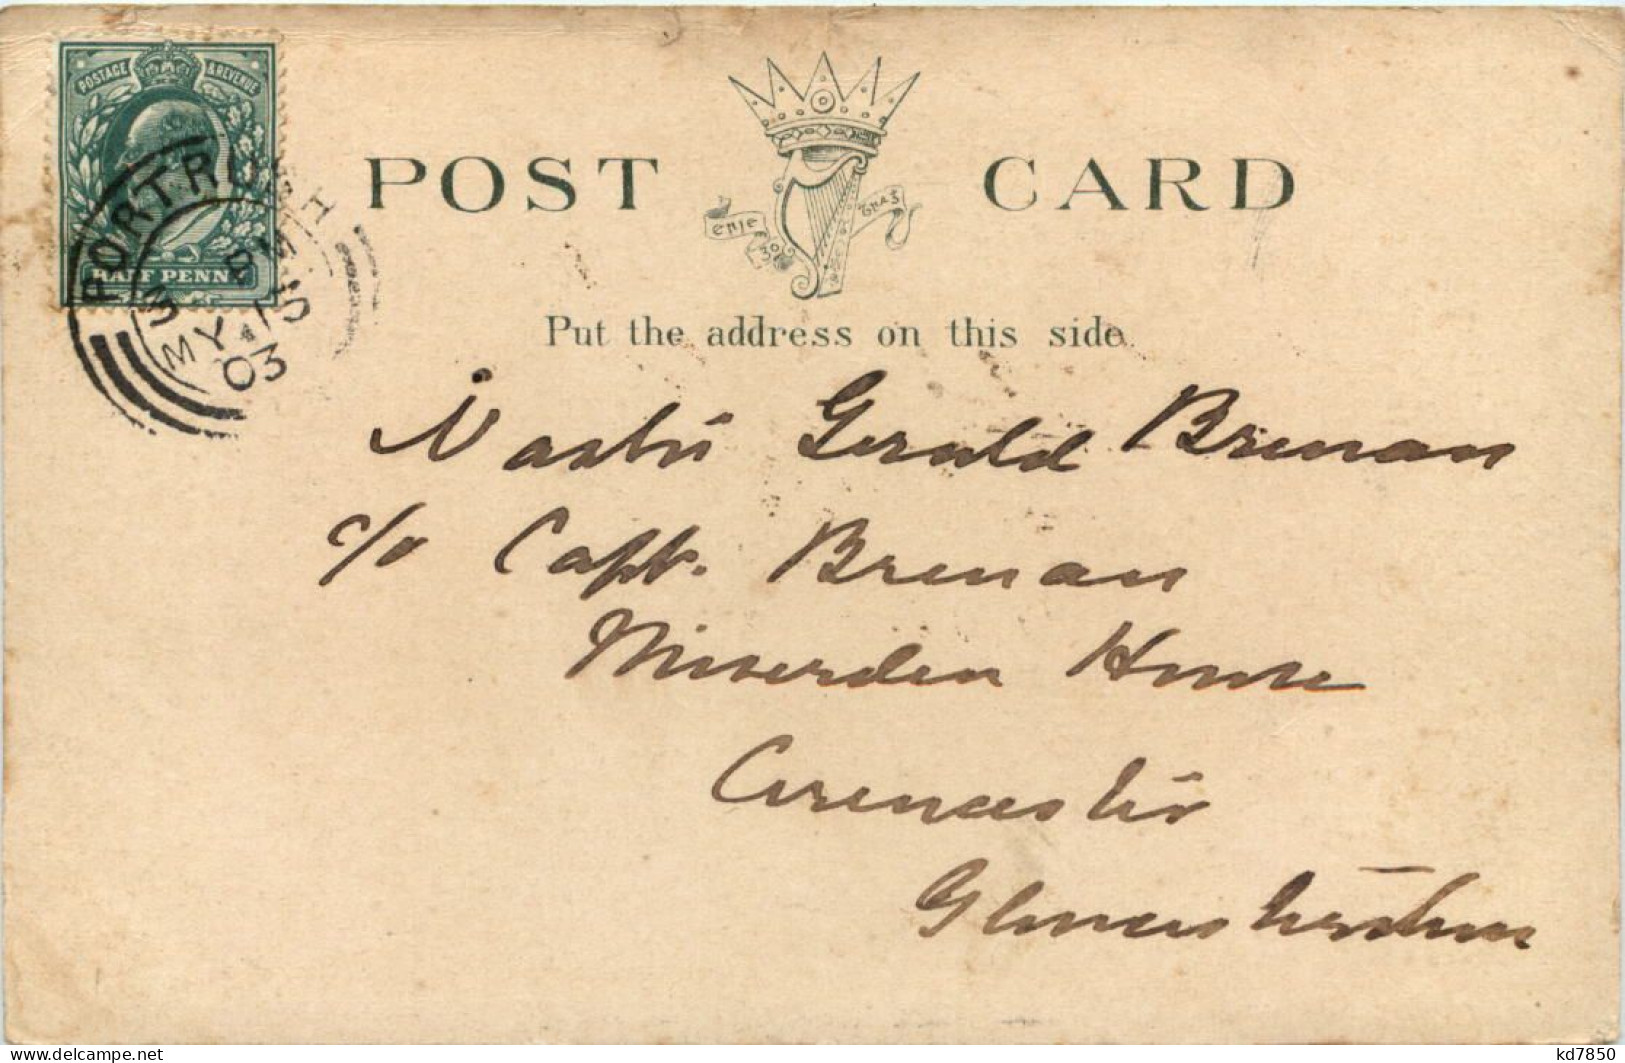 POSTAGE & REVENUE
HALF PENNY
PORTRUSH
MY 15
03
POST CARD
Put the address on this side.
Master Gerald Brenan
c/o Capt. Brenan
Miserden House
Cirencester
Gloucestershire
delcampe.net
kd7850